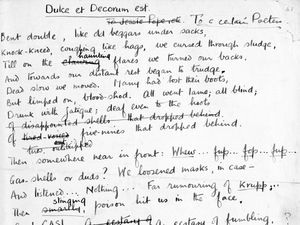 Dulce et Decorum est.
To Jessie Pope etc To a certain Poetess
Bent double, like old beggars under sacks,
Knock-kneed, coughing like hags, we cursed through sludge,
haunting
Till on the clawing flares we turned our backs.
And towards our distant rest began to trudge.
Dead slow we moved. Many had lost their boots,
But limped on, blood-shod. All went lame; all blind;
Drunk with fatigue; deaf even to the hoots
of disappointed shells that dropped behind.
of tired-voiced five-nines that dropped behind.
Then somewhere near in front: Whew... fup... fop... fup...
Gas-shells or duds? We loosened masks, in case—
And listened... Nothing... Far rumouring of Krupp;...
stinging
Then smartly, poison hit us in the face.
ecstasy of fumbling,